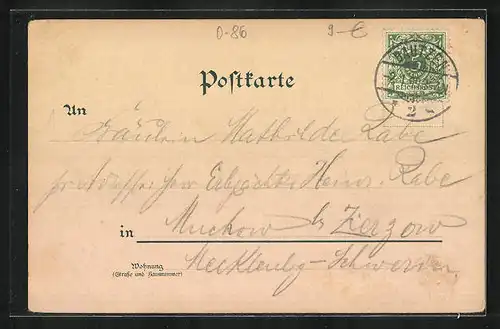 0-86 9-€
Postkarte
BAUTZEN
5
REICHSPOST
2
An
Fräulein Mathilde Rabe
pr Adresse Herr Erbpächter Heinr. Rabe
in Muchow b/ Zierzow
Wohnung
(Straße und Hausnummer)
Mecklenbg-Schwerin